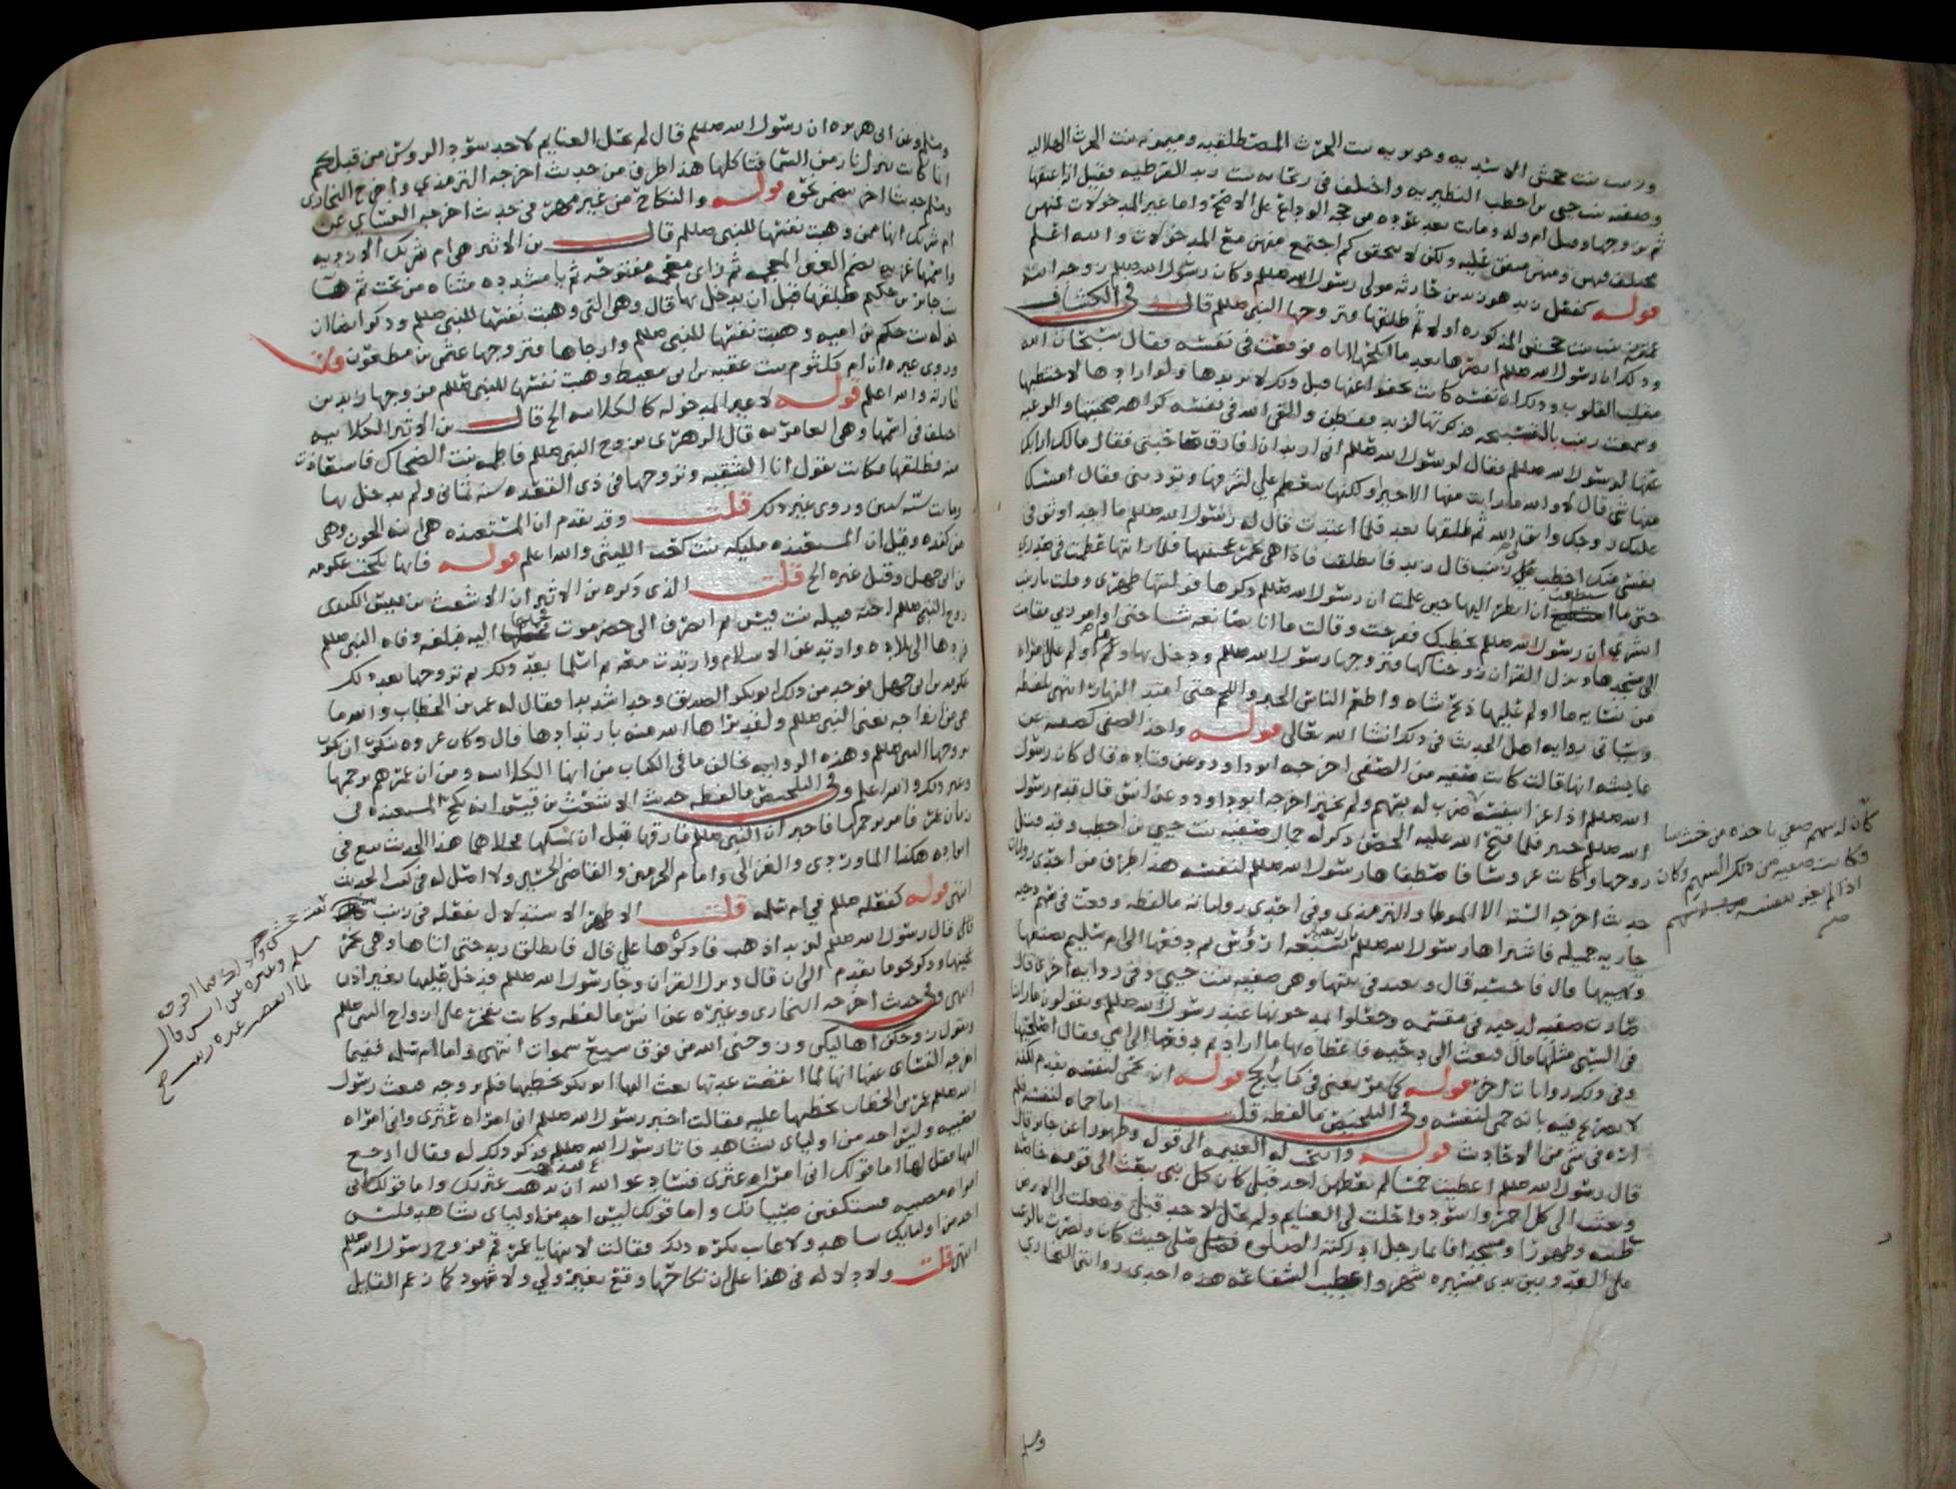 وزينب بنت جحش الاسديه وجويريه بنت الحرث المصطلقيه وميمونه بنت الحرث الهلاليه
وصفيه بنت حيي بن اخطب النظيريه واختلف في ريحانه بنت زيد القرظيه فقيل انه اعتقها
ثم تزوجها وقيل ام ولد وماتت بعد عوده من حجه الوداع على الاصح واما غير المدخولات فمنهن
مختلف فيهن ومنهن متفق عليه ولكن لا يتحقق كم اجتمع منهن مع المدخولات والله اعلم
قوله كفعل زيد هو زيد بن حارثه مولى رسول الله صللم وكان رسول الله صللم زوجه ابنة
عمته زينب بنت جحش المذكوره اولا ثم طلقها وتزوجها النبي صللم قال في الكشاف
وذلك ان رسول الله صللم ابصرها بعد ما انكحها اياه فوقعت في نفسه فقال سبحان الله
مقلب القلوب وذلك ان نفسه كانت تجفوا عنها قبل ذلك لا تريدها ولو ارادها لاختطبها
وسمعت زينب بالتسبيحه فذكرتها لزيد ففطن والقى الله في نفسه كراهه صحبتها والرغبه
عنها لرسول الله صللم فقال لرسول الله صللم اني اريد ان افارق صاحبتي فقال مالك ارابك
منها شي قال لا والله ما رايت منها الا خيرا ولكنها تتعظم علي لشرفها وتوذيني فقال امسك
عليك زوجك واتق الله ثم طلقها بعد فلما اعتدت قال له رسول الله صللم ما اجد اوثق في
نفسي منك اخطب علي زينب قال زيد فانطلقت فاذا هي تخمر عجينها فلما رايتها عظمت في صدري
حتى ما استطيع ان انظر اليها حين علمت ان رسول الله صللم ذكرها فوليتها ظهري وقلت يا زينب
ابشري ان رسول الله صللم يخطبك ففرحت وقالت ما انا بصانعه شيا حتى اوامر ربي فقامت
الى مسجدها ونزل القران زوجناكها فتزوجها رسول الله صللم ودخل بها وما اولم على امراه
من نسايه ما اولم عليها ذبح شاه واطعم الناس الخبز واللحم حتى امتد النهار انتهى بلفظه
وسياتي روايه اهل الحديث في ذلك انشا الله تعالى قوله واخذ الصفي كصفيه عن
عايشه انها قالت كانت صفيه من الصفي اخرجه ابوداود وعن قتاده قال كان رسول
الله صللم اذا غزا بنفسه ضرب له بسهم ولم يخير اخرجه ابوداود وعن انس قال قدم رسول
الله صللم خيبر فلما فتح الله عليه الحصن ذكر له جمال صفيه بنت حيي بن اخطب وقد قتل
زوجها وكانت عروسا فاصطفاها رسول الله صللم لنفسه هذا طرف من احدى روايات
حديث اخرجه السته الا الموطا والترمذي وفي احدى رواياته ما لفظه وقعت في سهم دحيه
جاريه جميله فاشتراها رسول الله صللم بسبعه ارؤس ثم دفعها الى ام سليم تصنعها
وتهيها قال فاحسبه قال وتعتد في بيتها وهي صفيه بنت حيي وفي روايه اخرى قال
صارت صفيه لدحيه في مقسمه وجعلوا يمدحونها عند رسول الله صللم ويقولون ما راينا
في السبي مثلها قال فبعث الى دحيه فاعطاه بها ما اراد ثم دفعها الى امي فقال اصلحيها
وفي ذلك روايات اخر قوله كما مر يعني في كتاب الحج قوله انه يحمى لنفسه
لا تصريح فيه بانه حمى لنفسه وفي التلخيص ما لفظه قلت اما حماه لنفسه فلم
اره في شي من الاحاديث قوله وابيحت له الغنيمه الى قوله وطهورا عن جابر قال
قال رسول الله صللم اعطيت خمسا لم يعطهن احد قبلي كان كل نبي يبعث الى قومه خاصه
وبعثت الى كل احمر واسود واحلت لي الغنايم ولم تحل لاحد قبلي وجعلت لي الارض
طيبه وطهورا ومسجدا فايما رجل ادركته الصلوه صلى حيث كان ونصرت بالرعب
على العدو بين يدي مسيره شهر واعطيت الشفاعه هذه احدى روايتي البخاري
كان له سهم صفي ياخذه من حيث شا
وكانت صفيه من ذلك السهم وكان
اذا لم يغز بنفسه ضرب له بسهم
ومسلم وعن ابي هريره ان رسول الله صللم قال لم تحل الغنايم لاحد سود الروس من قبلكم
انما كانت تنزل نار من السما فتاكلها هذا طرف من حديث اخرجه الترمذي واخرج البخاري
ومسلم حديثا اخر يتضمن نحوه قوله والنكاح من غير مهر في حديث اخرجه النسائي عن
ام شريك انها ممن وهبت نفسها للنبي صللم قال بن الاثير هي ام شريك الازديه
واسمها غزيه بضم الغين المعجمه ثم زاي معجمه مفتوحه ثم يا مشدده مثناه من تحت ثم ها
بنت جابر بن حكيم طلقها قبل ان يدخل بها قال وهي التي وهبت نفسها للنبي صللم وذكر ايضا ان
خوله بنت حكيم بن اميه وهبت نفسها للنبي صللم وارجاها فتزوجها عثمن بن مظعون قلت
وروى غيره ان ام كلثوم بنت عقبه بن ابي معيط وهبت نفسها للنبي صللم فزوجها زيد بن
حارثه والله اعلم قوله لا غير المدخوله كالكلابيه الخ قال بن الاثير الكلابيه
اختلف في اسمها وهي العامريه قال الزهري تزوج النبي صللم فاطمه بنت الضحاك فاستعاذت
منه فطلقها فكانت تقول انا الشقيه وتزوجها في ذي القعده سنه ثماني ولم يدخل بها
وماتت سنه ستين وروى غير ذلك قلت وقد تقدم ان المستعيذه هي ابنه الجون وهي
من كنده وقيل ان المستعيذه مليكه بنت كعب الليثي والله اعلم قوله فانها نكحت عكرمه
بن ابي جهل وقيل غيره الخ قلت الذي ذكره بن الاثير ان الاشعث بن قيس الكندي
زوج النبي صللم اخته قتيله بنت قيس ثم انصرف الى حضرموت ليحملها اليه فبلغه وفاه النبي صللم
فردها الى بلاده وارتد عن الاسلام وارتدت معه ثم اسلما بعد ذلك ثم تزوجها بعد ذلك
عكرمه بن ابي جهل فوجد من ذلك ابو بكر الصديق وجدا شديدا فقال له عمر بن الخطاب والله ما
هي من ازواجه يعني النبي صللم ولقد براها الله منه بارتدادها قال وكان عروه ينكر ان يكون
تزوجها النبي صللم وهذه الروايه تخالف ما في الكتاب من انها الكلابيه ومن ان عمر هم برجمها
وغير ذلك والله اعلم وفي التلخيص ما لفظه حديث الاشعث بن قيس انه نكح المستعيذه في
زمان عمر فامر برجمها فاخبر ان النبي صللم فارقها قبل ان يمسها فخلاهما هذا الحديث تبع في
ايراده هكذا الماوردي والغزالي وامام الحرمين والقاضي الحسين ولا اصل له في كتب الحديث
انتهى قوله كفعله صللم في ام سلمه قلت الاظهر الاستدلال بفعله في زينب
قال قال رسول الله صللم لزيد اذهب فاذكرها علي قال فانطلق زيد حتى اتاها وهي تخمر
عجينها وذكر نحو ما تقدم الى ان قال ونزل القران وجا رسول الله صللم فدخل عليها بغير اذن
انتهى وفي حديث اخرجه البخاري وغيره عن انس ما لفظه وكانت تفخر على ازواج النبي صللم
وتقول زوجكن اهاليكن وزوجني الله من فوق سبع سموات انتهى واما ام سلمه ففيما
اخرجه النسائي عنها انها لما انقضت عدتها بعث اليها ابو بكر يخطبها فلم تزوجه فبعث رسول
الله صللم عمر بن الخطاب يخطبها عليه فقالت اخبر رسول الله صللم اني امراه غيرى واني امراه
مصبيه وليس احد من اوليائي شاهد فاتا رسول الله صللم فذكر ذلك له فقال ارجع
اليها فقل لها اما قولك اني امراه غيرى فسادعو الله ان يذهب غيرتك واما قولك اني
امراه مصبيه فستكفين صبيانك واما قولك ليس احد من اوليائي شاهد فليس
احد من اوليايك شاهد ولا غايب يكره ذلك فقالت لابنها يا عمر قم فزوج رسول الله صللم
انتهى قلت ولا دلاله في هذا على ان نكاحها وقع بغير ولي ولا شهود كما زعم القايل
بنت جحش وذلك فيما اخرجه
مسلم وغيره عن انس قال
لما انقضت عده زينب